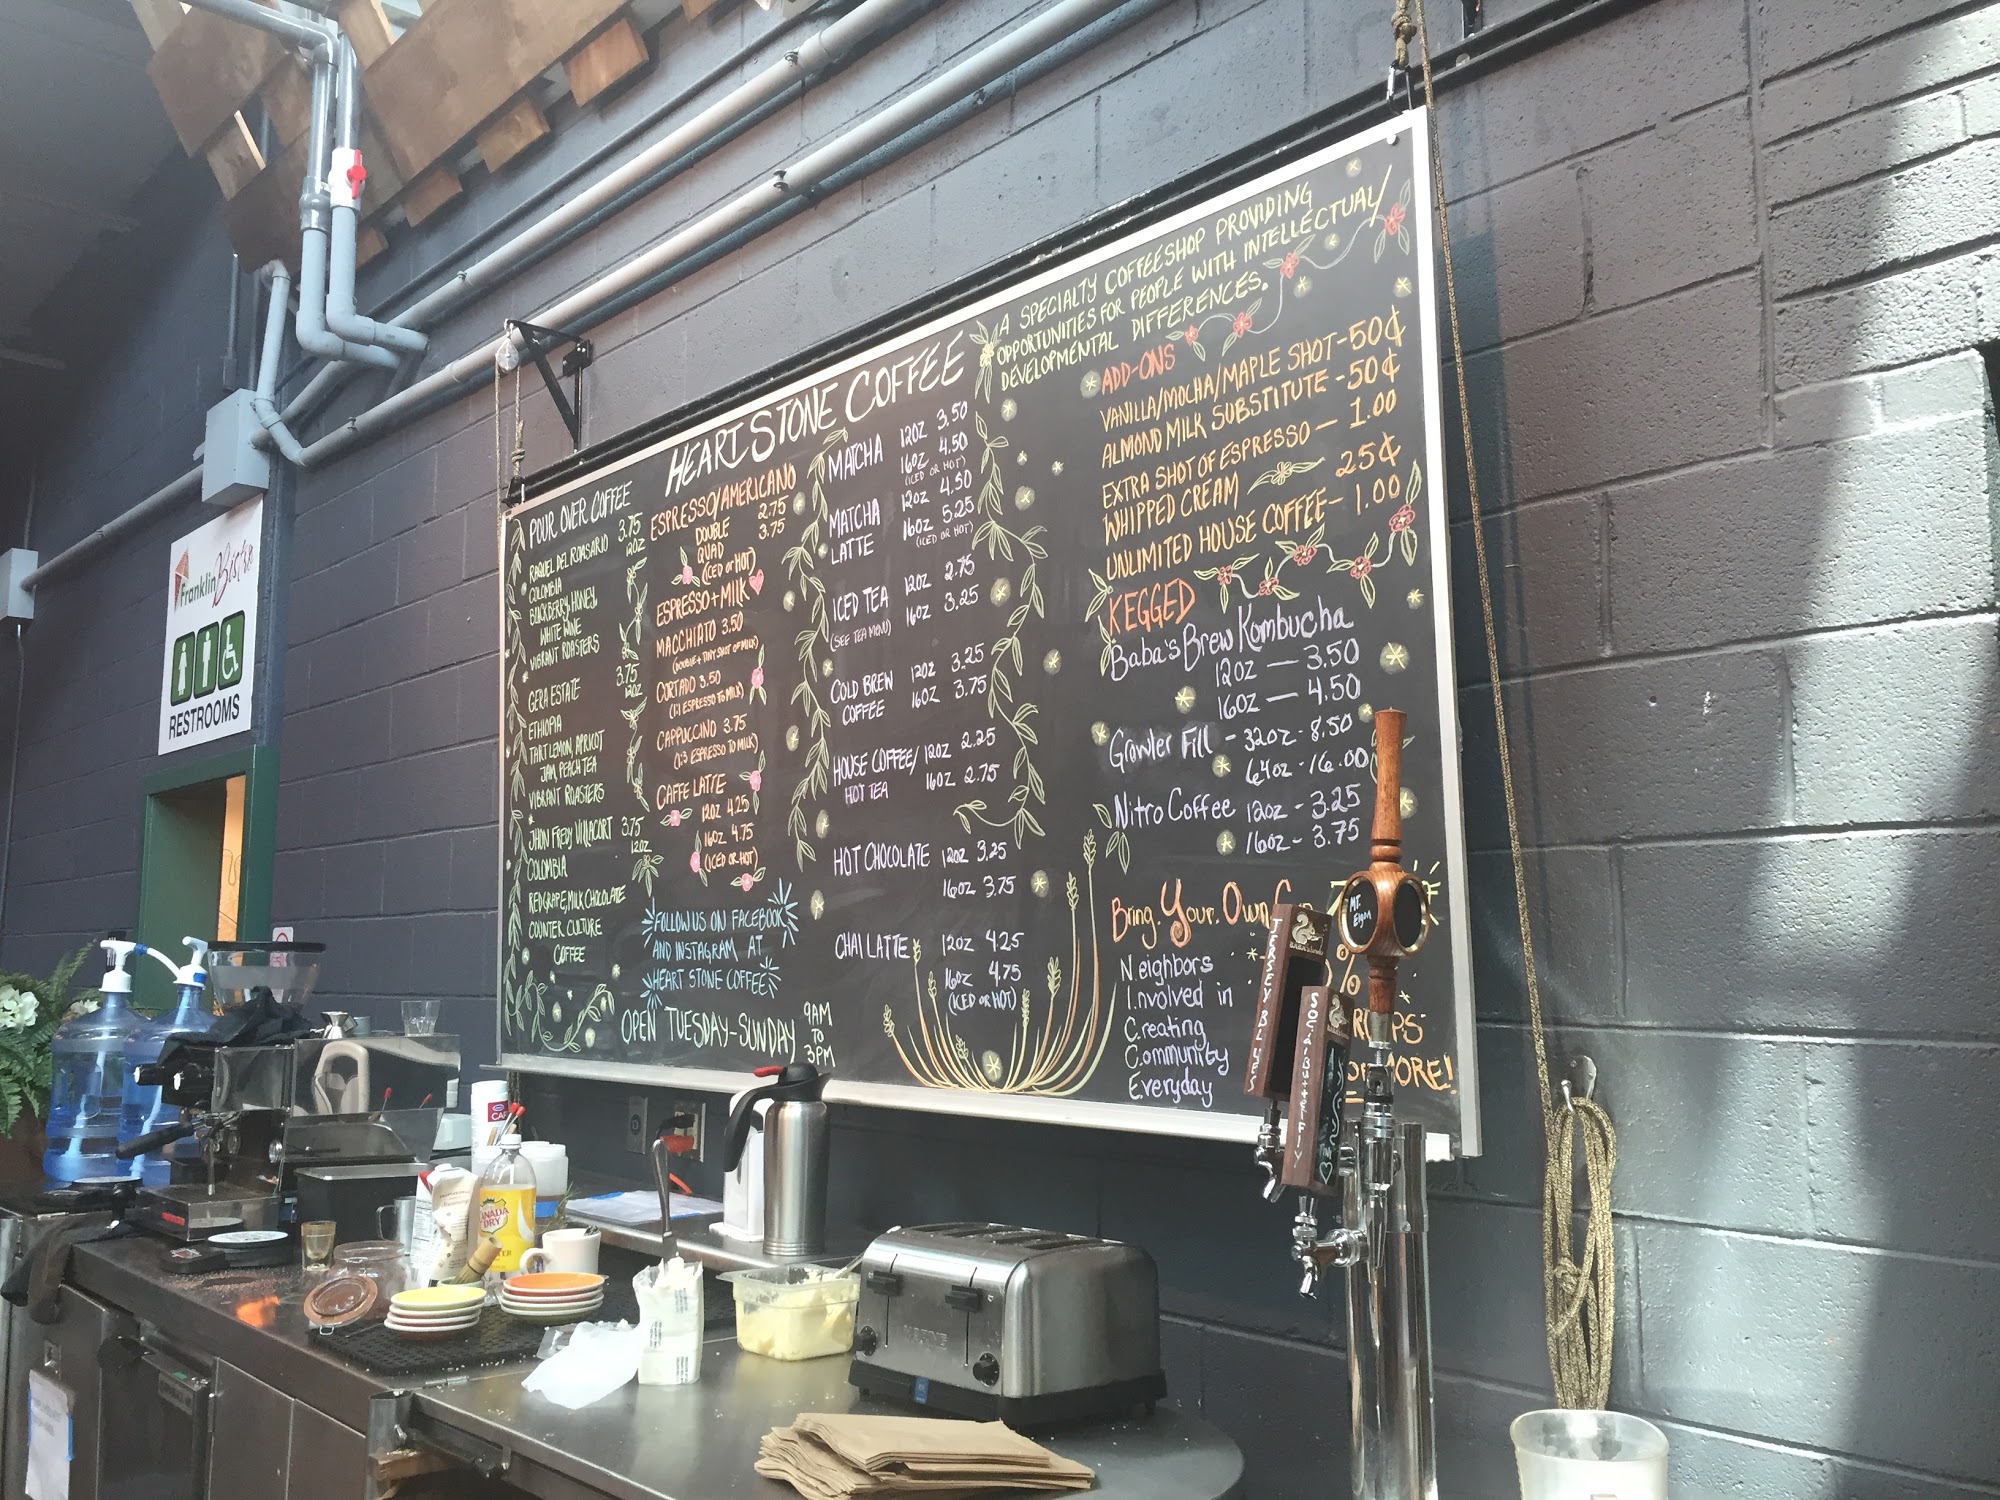 HEART STONE COFFEE
POUR OVER COFFEE
3.75
RAQUEL DEL ROASARIO 12OZ
COLOMBIA
BLACKBERRY, HONEY,
WHITE WINE
VIBRANT ROASTERS
3.75
GERA ESTATE 12OZ
ETHIOPIA
TART LEMON, APRICOT
JAM, PEACH TEA
VIBRANT ROASTERS
JHON FREDY VILLACORT 3.75
COLOMBIA 12OZ
RED GRAPE, MILK CHOCOLATE
COUNTER CULTURE
COFFEE
ESPRESSO/AMERICANO
DOUBLE 2.75
QUAD 3.75
(ICED OR HOT)
ESPRESSO + MILK
MACCHIATO 3.50
(DOUBLE + TINY SHOT OF MILK)
CORTADO 3.50
(1:1 ESPRESSO TO MILK)
CAPPUCCINO 3.75
(1:3 ESPRESSO TO MILK)
CAFFE LATTE
12OZ 4.25
16OZ 4.75
(ICED OR HOT)
FOLLOW US ON FACEBOOK
AND INSTAGRAM AT
HEART STONE COFFEE
OPEN TUESDAY-SUNDAY 9AM
TO
3PM
MATCHA 12OZ 3.50
16OZ 4.50
(ICED OR HOT)
MATCHA 12OZ 4.50
LATTE 16OZ 5.25
(ICED OR HOT)
ICED TEA 12OZ 2.75
(SEE TEA MENU) 16OZ 3.25
COLD BREW 12OZ 3.25
COFFEE 16OZ 3.75
HOUSE COFFEE/ 12OZ 2.25
HOT TEA 16OZ 2.75
HOT CHOCOLATE 12OZ 3.25
16OZ 3.75
CHAI LATTE 12OZ 4.25
16OZ 4.75
(ICED OR HOT)
A SPECIALTY COFFEESHOP PROVIDING
OPPORTUNITIES FOR PEOPLE WITH INTELLECTUAL/
DEVELOPMENTAL DIFFERENCES.
ADD-ONS
VANILLA/MOCHA/MAPLE SHOT-50¢
ALMOND MILK SUBSTITUTE -50¢
EXTRA SHOT OF ESPRESSO — 1.00
WHIPPED CREAM 25¢
UNLIMITED HOUSE COFFEE- 1.00
KEGGED
Baba's Brew Kombucha
12OZ — 3.50
16OZ — 4.50
Growler Fill - 32oz - 8.50
64oz - 16.00
Nitro Coffee 12oz - 3.25
16oz - 3.75
Bring. Your. Own.
N.eighbors
I.nvolved in
C.reating
C.ommunity
E.veryday
%
OF MORE!
Franklin Bistro
RESTROOMS
JERSEY BLUES
Social Butterfly
CANADA
DRY